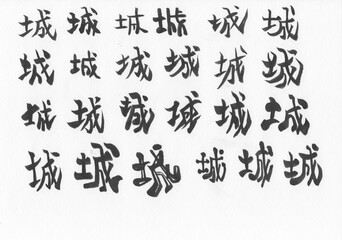 城城城城城城
城城城城城城
城城城域城城
城城城城城城